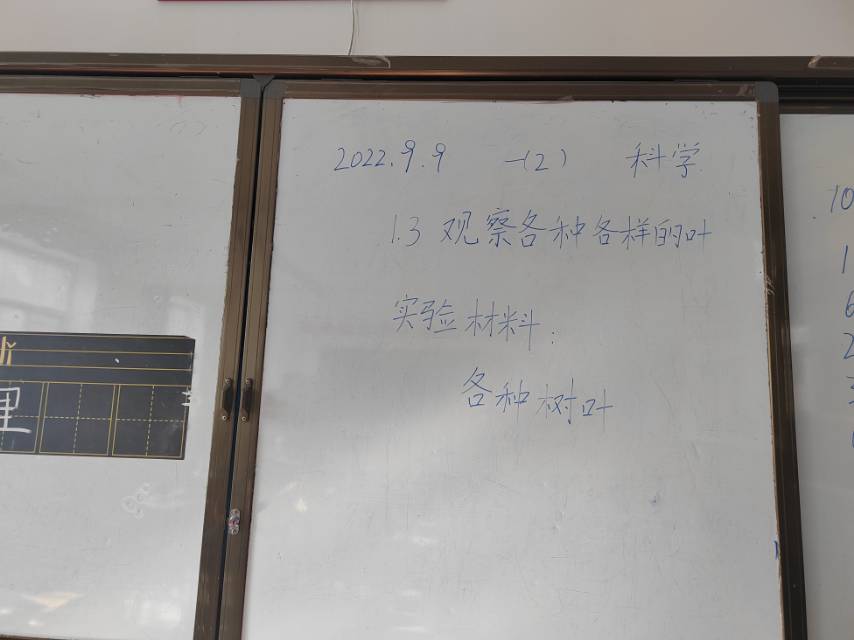 lǐ
里
2022.9.9 一(2) 科学
1.3 观察各种各样的叶
实验材料:
各种树叶
10
1
6
2